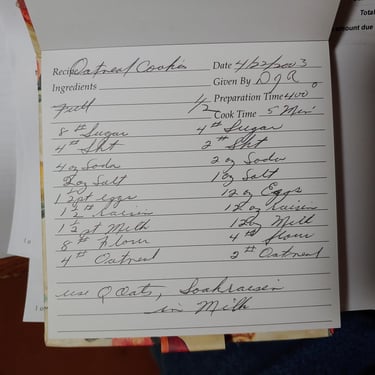 Total
amount due
Recipe Oatmeal Cookies Date 4/22/2003
Ingredients Given By D J R
Full 1/2 Preparation Time 400°
Cook Time 5 Min
8 # Sugar 4 # Sugar
4 # Sht 2 # Sht
4 oz Soda 2 oz Soda
2 oz Salt 1 oz Salt
1 2 pt eggs 12 oz Eggs
1 2 # raisin 12 oz raisin
1 2 pt Milk 12 oz Milk
8 # Flour 4 # Flour
4 # Oatmeal 2 # Oatmeal
use Q Oats, Soak raisin
in Milk